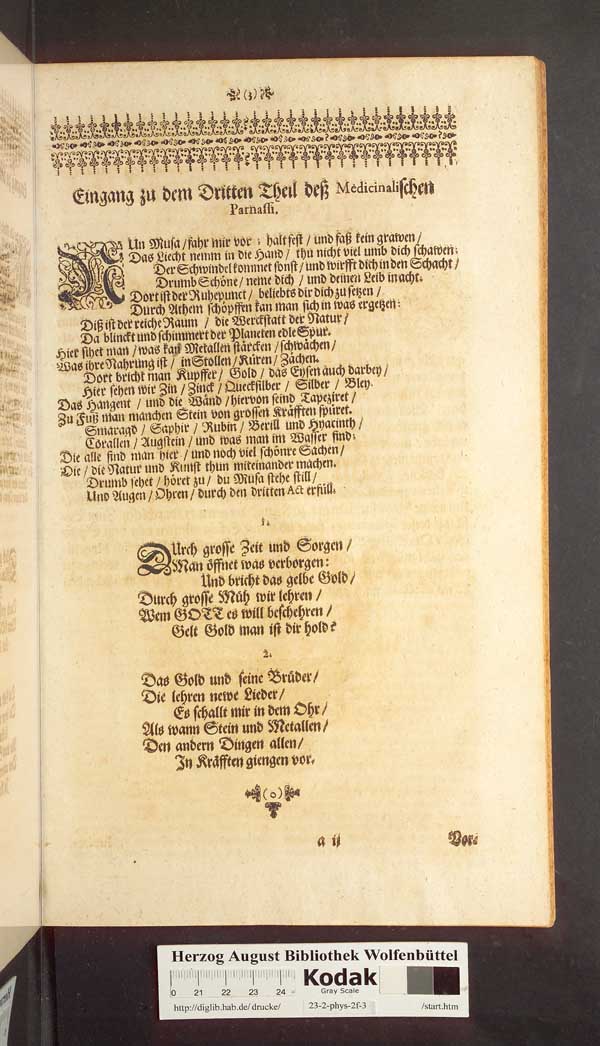 (3)
Eingang zu dem Dritten Theil deß Medicinalischen
Parnassi.
NUn Musa / fahr mir vor: halt fest / und faß kein grawen /
Das Liecht nemm in die Hand / thu nicht viel umb dich schawen:
Der Schwindel kommet sonst / und wirfft dich in den Schacht /
Drumb Schöne / neme dich / und deinen Leib in acht.
Dort ist der Ruhepunct / beliebts dir dich zu setzen /
Durch Athem schöpffen kan man sich in was ergetzen:
Diß ist der reiche Raum / die Werckstatt der Natur /
Da blinckt und schimmert der Planeten edle Spur.
Hier sihet man / was kañ Metallen stärcken / schwächen /
Was ihre Nahrung ist / in Stollen / Küren / Zächen.
Dort bricht man Kupffer / Gold / das Eysen auch darbey /
Hier sehen wir Zin / Zinck / Quecksilber / Silber / Bley.
Das Hangent / und die Wänd / hiervon seind Tapeziret /
Zu Fuß man manchen Stein von grossen Kräfften spüret.
Smaragd / Saphir / Rubin / Berill und Hyacinth /
Corallen / Augstein / und was man im Wasser find:
Die alle find man hier / und noch viel schönre Sachen /
Die / die Natur und Kunst thun miteinander machen.
Drumb sehet / höret zu / du Musa stehe still /
Und Augen / Ohren / durch den dritten Act erfüll.
1.
DUrch grosse Zeit und Sorgen /
Man öffnet was verborgen:
Und bricht das gelbe Gold /
Durch grosse Müh wir lehren /
Wem GOTT es will beschehren /
Gelt Gold man ist dir hold?
2.
Das Gold und seine Brüder /
Die lehren newe Lieder /
Es schallt mir in dem Ohr /
Als wann Stein und Metallen /
Den andern Dingen allen /
In Kräfften giengen vor.
(o)
a ij
Vor:
Herzog August Bibliothek Wolfenbüttel
Kodak
Gray Scale
0 21 22 23 24
http://diglib.hab.de/drucke/ 23-2-phys-2f-3 /start.htm